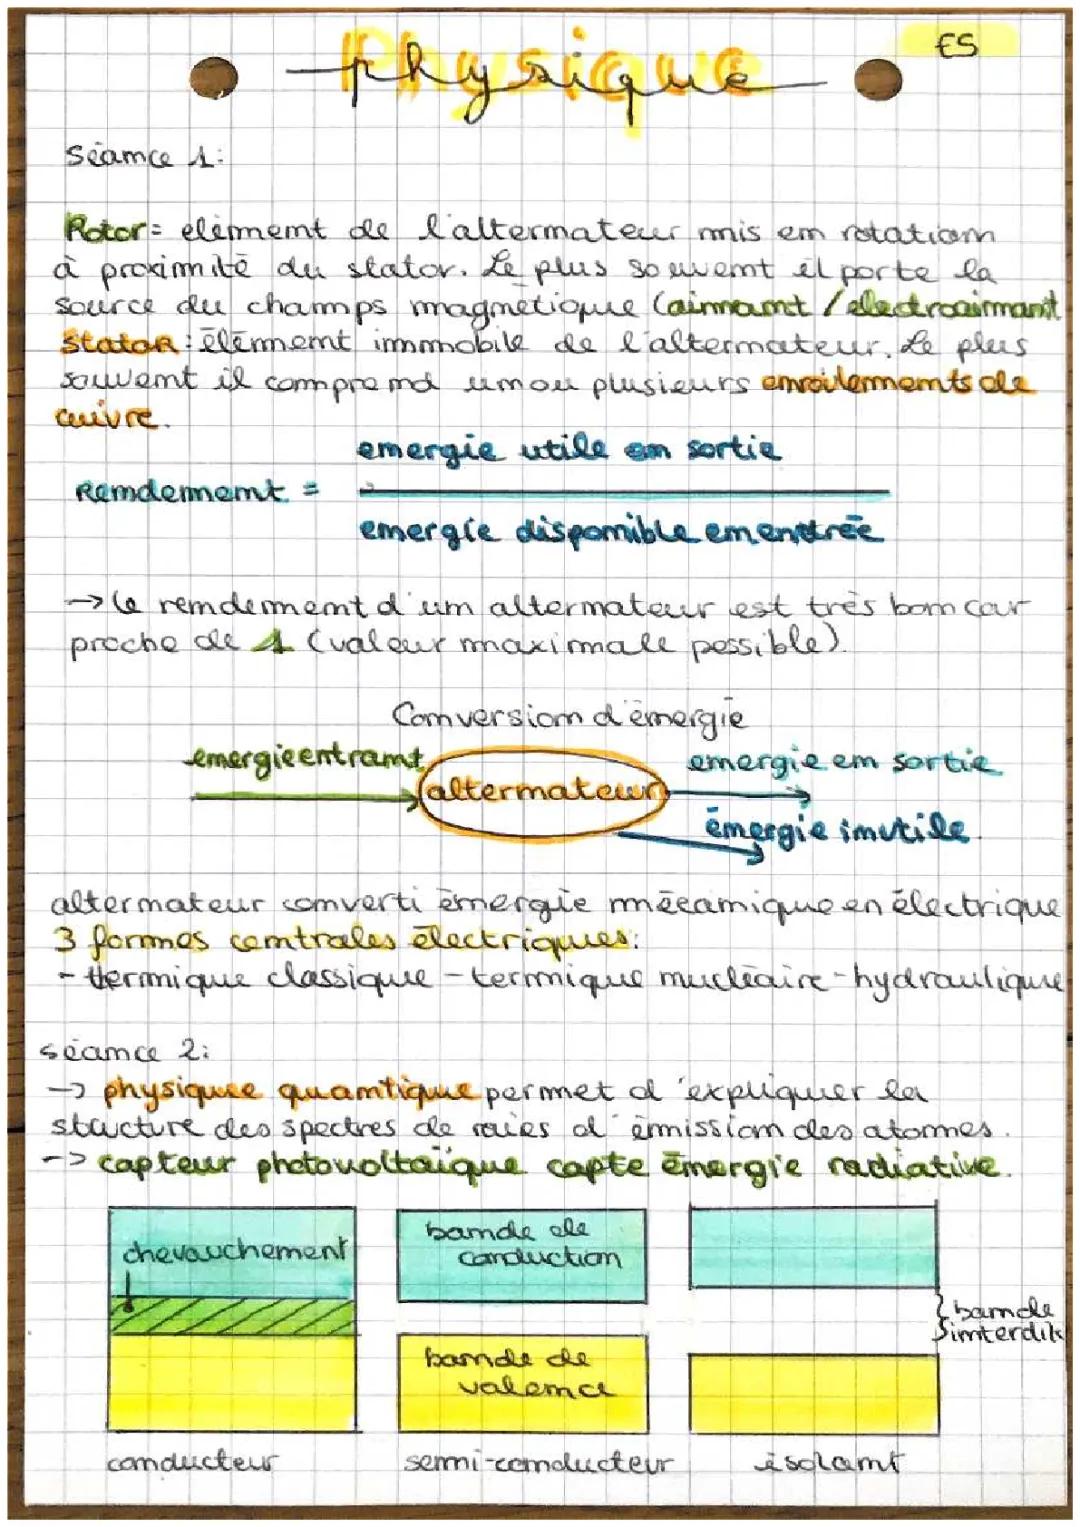 Physique
ES
Séance 1:
Rotor = élément de l'alternateur mis en rotation
à proximité du stator. Le plus souvent il porte la
source du champs magnétique (aimant / electroaimant
Stator : élément immobile de l'alternateur. Le plus
souvent il comprend un ou plusieurs enroilements de
cuivre.
energie utile en sortie
Rendement =
energie disponible en entrée
→ le rendement d'un alternateur est très bon car
proche de 1 (valeur maximale possible).
Conversion d'énergie
energie entrant
alternateur
energie en sortie
énergie inutile.
alternateur converti énergie mécanique en électrique
3 formes centrales électriques:
- thermique classique - termique nucléaire - hydraulique
séance 2:
→ physique quantique permet d'expliquer la
structure des spectres de raies d'émission des atomes.
-> capteur photovoltaïque capte énergie radiative.
chevauchement
bande de
conduction
bande
interdite
bande de
valence
conducteur
semi-conducteur
isolant